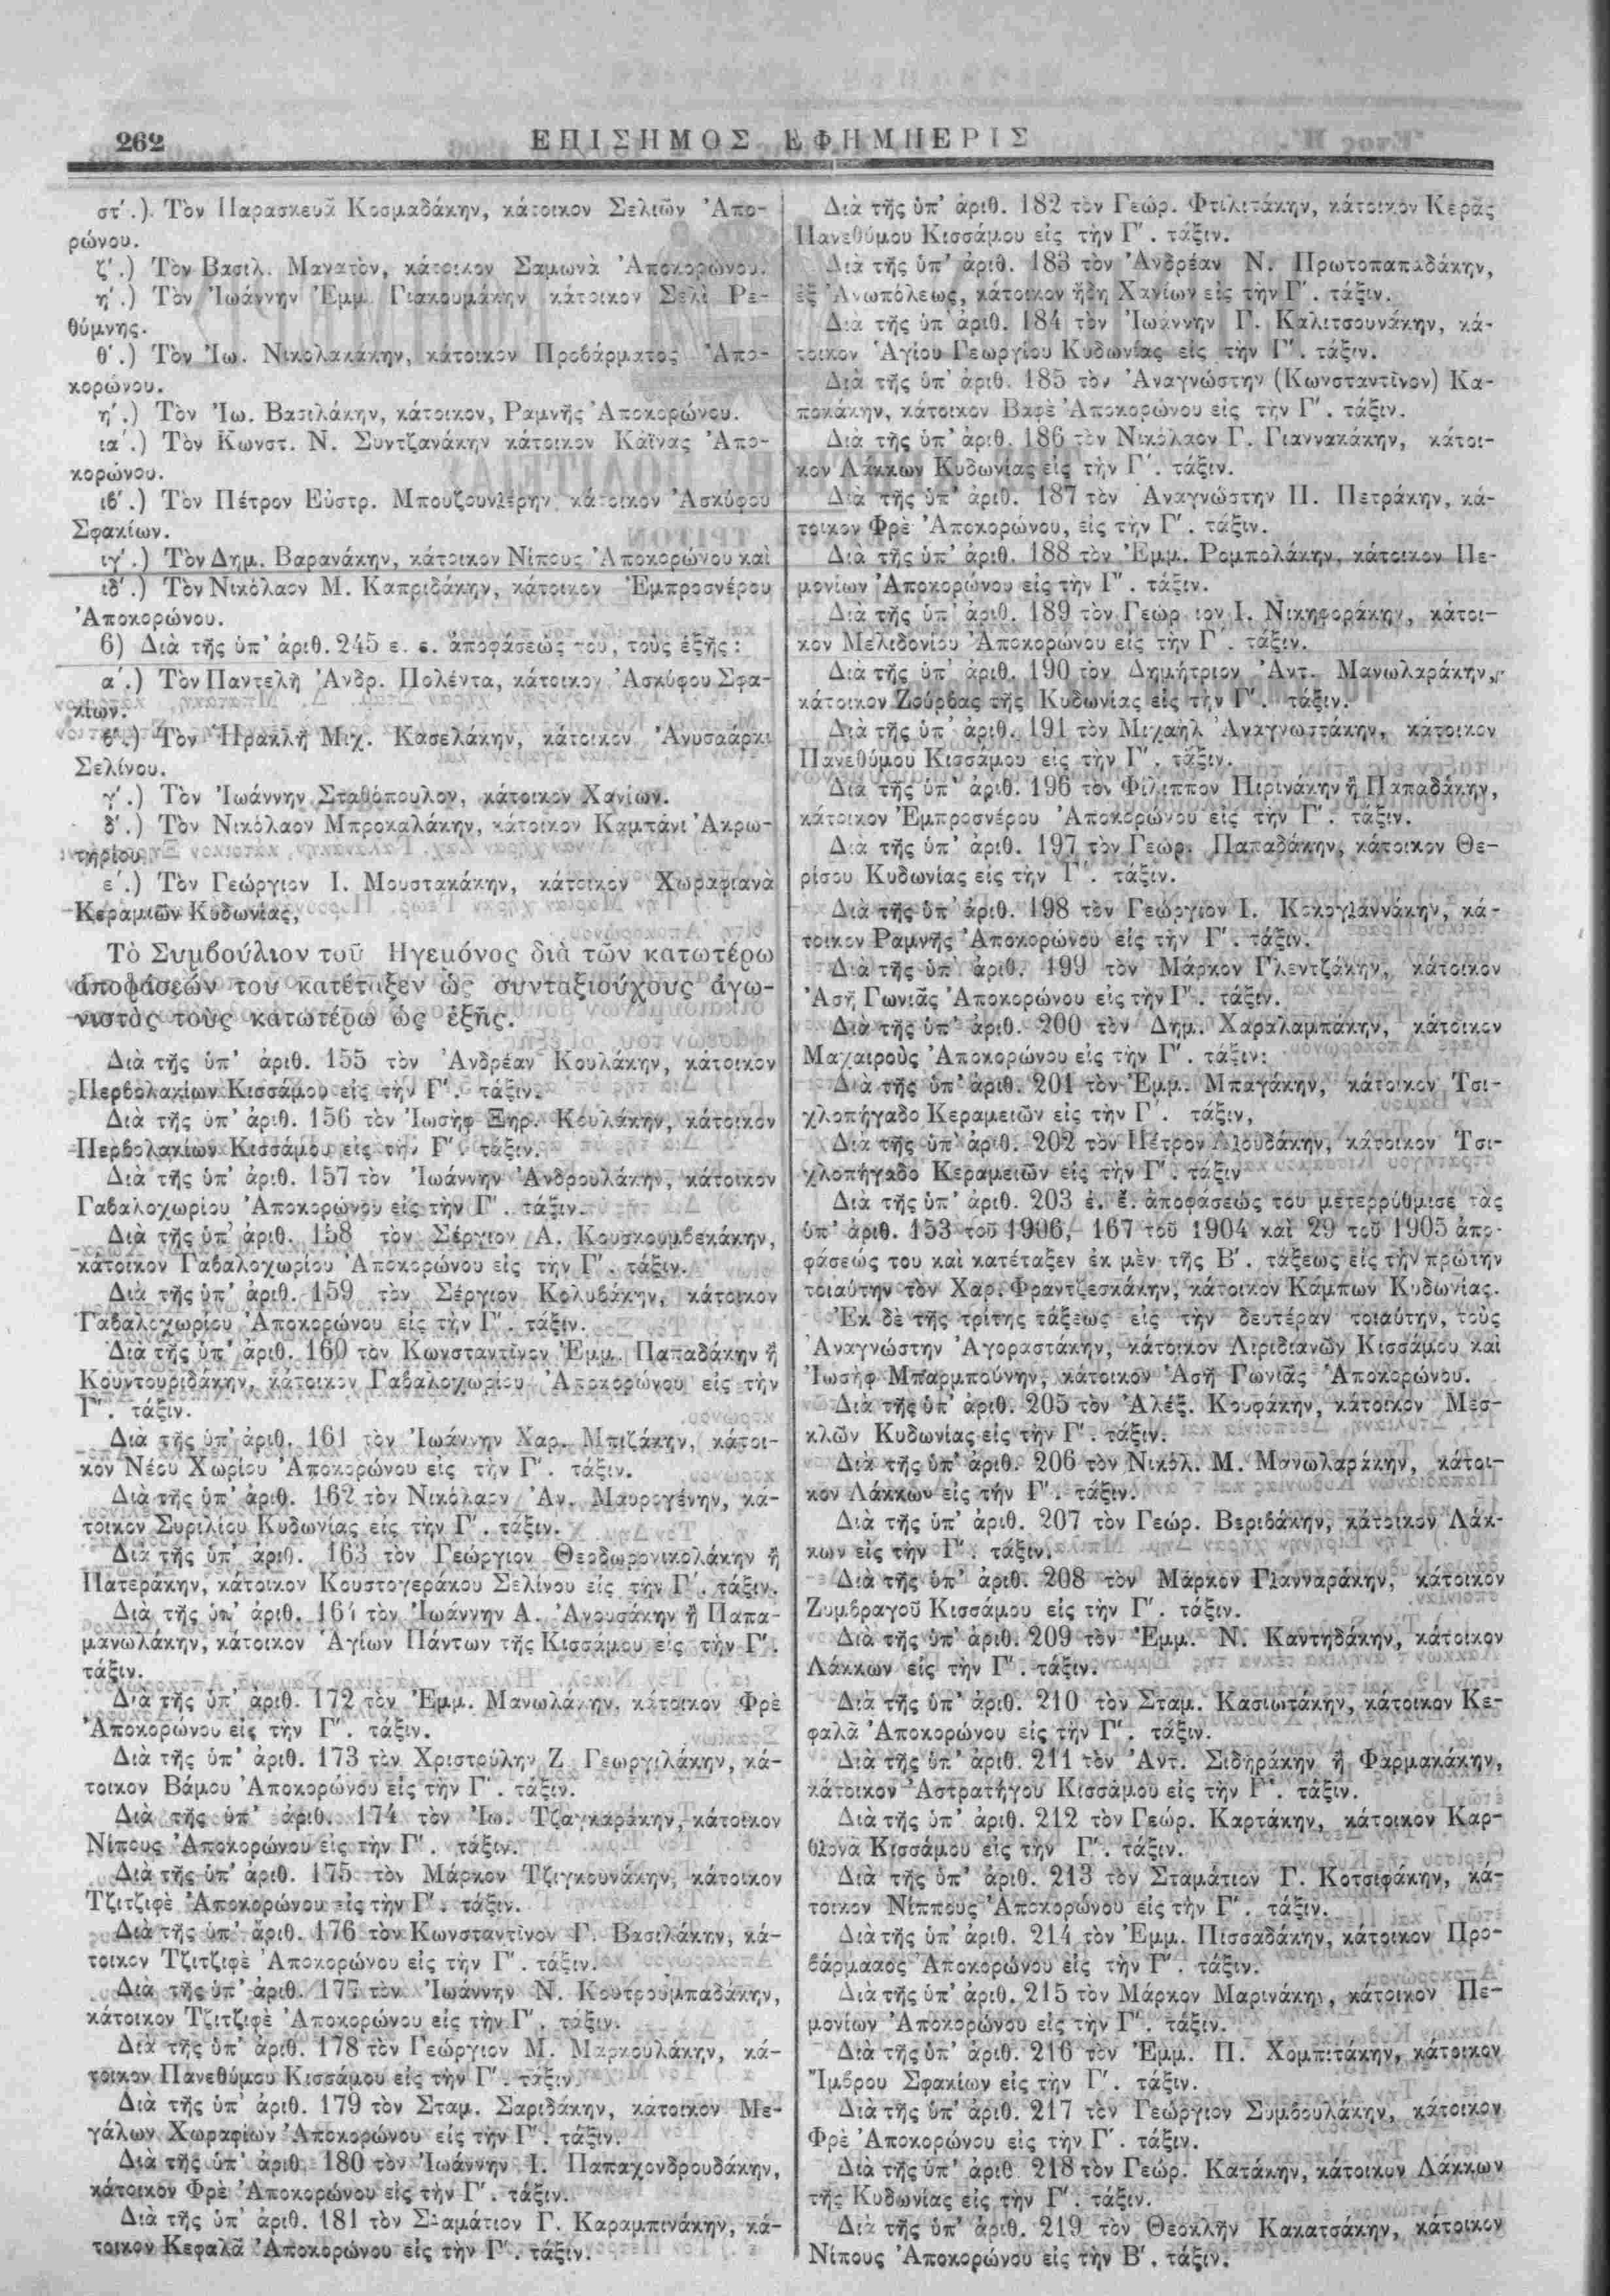 262
ΕΠΙΣΗΜΟΣ ΕΦΗΜΠΕΡΙΣ
στ΄.) Τὸν Παρασκευᾶ Κοσμαδάκην, κάτοικον Σελιῶν Ἀπο-
ρώνου.
ζ΄.) Τὸν Βασιλ. Μανατὸν, κάτοικον Σαμωνὰ Ἀποκορώνου.
η΄.) Τὸν Ἰωάννην Ἐμμ. Γιακουμάκην κάτοικον Σελὶ Ρε-
θύμνης.
θ΄.) Τὸν Ἰω. Νικολακάκην, κάτοικον Προβάρματος Ἀπο-
κορώνου.
η΄.) Τὸν Ἰω. Βασιλάκην, κάτοικον, Ραμνῆς Ἀποκορώνου.
ια΄.) Τὸν Κωνστ. Ν. Συντζανάκην κάτοικον Κάϊνας Ἀπο-
κορώνου.
ιβ΄.) Τὸν Πέτρον Εὐστρ. Μπουζουνιέρην κάτοικον Ἀσκύφου
Σφακίων.
ιγ΄.) Τὸν Δημ. Βαρανάκην, κάτοικον Νίπους Ἀποκορώνου καὶ
ιδ΄.) Τὸν Νικόλαον Μ. Καπριδάκην, κάτοικον Ἐμπροσνέρου
Ἀποκορώνου.
6) Διὰ τῆς ὑπ' ἀριθ. 245 ε. ε. ἀποφάσεώς του, τοὺς ἑξῆς:
α΄.) Τὸν Παντελῆ Ἀνδρ. Πολέντα, κάτοικον Ἀσκύφου Σφα-
κίων.
β΄.) Τὸν Ἡρακλῆ Μιχ. Κασελάκην, κάτοικον Ἀνυσαάρκι
Σελίνου.
γ΄.) Τὸν Ἰωάννην Σταθόπουλον, κάτοικον Χανίων.
δ΄.) Τὸν Νικόλαον Μπροκαλάκην, κάτοικον Καμπάνι Ἀκρω-
τηρίου
ε΄.) Τὸν Γεώργιον Ι. Μουστακάκην, κάτοικον Χωραφιανὰ
Κεραμιῶν Κυδωνίας,
Τὸ Συμβούλιον τοῦ Ηγεμόνος διὰ τῶν κατωτέρω
ἀποφάσεών του κατέταξεν ὡς συνταξιούχους ἀγω-
νιστὰς τοὺς κατωτέρω ὡς ἑξῆς.
Διὰ τῆς ὑπ' ἀριθ. 155 τὸν Ἀνδρέαν Κουλάκην, κάτοικον
Περβολακίων Κισσάμου εἰς τὴν Γ΄. τάξιν.
Διὰ τῆς ὑπ' ἀριθ. 156 τὸν Ἰωσὴφ Ξηρ. Κουλάκην, κάτοικον
Περβολακίων Κισσάμου εἰς τὴν Γ΄. τάξιν.
Διὰ τῆς ὑπ' ἀριθ. 157 τὸν Ἰωάννην Ἀνδρουλάκην, κάτοικον
Γαβαλοχωρίου Ἀποκορώνου εἰς τὴν Γ΄. τάξιν.
Διὰ τῆς ὑπ' ἀριθ. 158 τὸν Σέργιον Α. Κουσκουμβεκάκην,
κάτοικον Γαβαλοχωρίου Ἀποκορώνου εἰς τὴν Γ΄. τάξιν.
Διὰ τῆς ὑπ' ἀριθ. 159 τὸν Σέργιον Κολυβάκην, κάτοικον
Γαβαλοχωρίου Ἀποκορώνου εἰς τὴν Γ΄. τάξιν.
Διὰ τῆς ὑπ' ἀριθ. 160 τὸν Κωνσταντῖνον Ἐμμ. Παπαδάκην ἢ
Κουντουριδάκην, κάτοικον Γαβαλοχωρίου Ἀποκορώνου εἰς τὴν
Γ΄. τάξιν.
Διὰ τῆς ὑπ' ἀριθ. 161 τὸν Ἰωάννην Χαρ. Μπιζάκην, κάτοι-
κον Νέου Χωρίου Ἀποκορώνου εἰς τὴν Γ΄. τάξιν.
Διὰ τῆς ὑπ' ἀριθ. 162 τὸν Νικόλαον Ἀν. Μαυρογένην, κά-
τοικον Συριλίου Κυδωνίας εἰς τὴν Γ΄. τάξιν.
Διὰ τῆς ὑπ' ἀριθ. 163 τὸν Γεώργιον Θεοδωρονικολάκην ἢ
Πατεράκην, κάτοικον Κουστογεράκου Σελίνου εἰς τὴν Γ΄. τάξιν.
Διὰ τῆς ὑπ' ἀριθ. 164 τὸν Ἰωάννην Α. Ἀνουσάκην ἢ Παπα-
μανωλάκην, κάτοικον Ἁγίων Πάντων τῆς Κισσάμου εἰς τὴν Γ΄.
τάξιν.
Διὰ τῆς ὑπ' ἀριθ. 172 τὸν Ἐμμ. Μανωλάκην, κάτοικον Φρὲ
Ἀποκορώνου εἰς τὴν Γ΄. τάξιν.
Διὰ τῆς ὑπ' ἀριθ. 173 τὸν Χριστούλην Ζ. Γεωργιλάκην, κά-
τοικον Βάμου Ἀποκορώνου εἰς τὴν Γ΄. τάξιν.
Διὰ τῆς ὑπ' ἀριθ. 174 τὸν Ἰω. Τζαγκαράκην, κάτοικον
Νίπους Ἀποκορώνου εἰς τὴν Γ΄. τάξιν.
Διὰ τῆς ὑπ' ἀριθ. 175 τὸν Μάρκον Τζιγκουνάκην, κάτοικον
Τζιτζιφὲ Ἀποκορώνου εἰς τὴν Γ΄. τάξιν.
Διὰ τῆς ὑπ' ἀριθ. 176 τὸν Κωνσταντῖνον Γ. Βασιλάκην, κά-
τοικον Τζιτζιφὲ Ἀποκορώνου εἰς τὴν Γ΄. τάξιν.
Διὰ τῆς ὑπ' ἀριθ. 177 τὸν Ἰωάννην Ν. Κουτρουμπαδάκην,
κάτοικον Τζιτζιφὲ Ἀποκορώνου εἰς τὴν Γ΄. τάξιν.
Διὰ τῆς ὑπ' ἀριθ. 178 τὸν Γεώργιον Μ. Μαρκουλάκην, κά-
τοικον Πανεθύμου Κισσάμου εἰς τὴν Γ΄. τάξιν.
Διὰ τῆς ὑπ' ἀριθ. 179 τὸν Σταμ. Σαριδάκην, κάτοικον Με-
γάλων Χωραφίων Ἀποκορώνου εἰς τὴν Γ΄. τάξιν.
Διὰ τῆς ὑπ' ἀριθ. 180 τὸν Ἰωάννην Ι. Παπαχονδρουδάκην,
κάτοικον Φρὲ Ἀποκορώνου εἰς τὴν Γ΄. τάξιν.
Διὰ τῆς ὑπ' ἀριθ. 181 τὸν Σταμάτιον Γ. Καραμπινάκην, κά-
τοικον Κεφαλᾶ Ἀποκορώνου εἰς τὴν Γ΄. τάξιν.
Διὰ τῆς ὑπ' ἀριθ. 182 τὸν Γεώρ. Φτιλιτάκην, κάτοικον Κερᾶς
Πανεθύμου Κισσάμου εἰς τὴν Γ΄. τάξιν.
Διὰ τῆς ὑπ' ἀριθ. 183 τὸν Ἀνδρέαν Ν. Πρωτοπαπαδάκην,
ἐξ Ἀνωπόλεως, κάτοικον ἤδη Χανίων εἰς τὴν Γ΄. τάξιν.
Διὰ τῆς ὑπ' ἀριθ. 184 τὸν Ἰωάννην Γ. Καλιτσουνάκην, κά-
τοικον Ἁγίου Γεωργίου Κυδωνίας εἰς τὴν Γ΄. τάξιν.
Διὰ τῆς ὑπ' ἀριθ. 185 τὸν Ἀναγνώστην (Κωνσταντῖνον) Κα-
ποκάκην, κάτοικον Βαφὲ Ἀποκορώνου εἰς τὴν Γ΄. τάξιν.
Διὰ τῆς ὑπ' ἀριθ. 186 τὸν Νικόλαον Γ. Γιαννακάκην, κάτοι-
κον Λάκκων Κυδωνίας εἰς τὴν Γ΄. τάξιν.
Διὰ τῆς ὑπ' ἀριθ. 187 τὸν Ἀναγνώστην Π. Πετράκην, κά-
τοικον Φρὲ Ἀποκορώνου, εἰς τὴν Γ΄. τάξιν.
Διὰ τῆς ὑπ' ἀριθ. 188 τὸν Ἐμμ. Ρομπολάκην, κάτοικον Πε-
μονίων Ἀποκορώνου εἰς τὴν Γ΄. τάξιν.
Διὰ τῆς ὑπ' ἀριθ. 189 τὸν Γεώρ ιον Ι. Νικηφοράκην, κάτοι-
κον Μελιδονίου Ἀποκορώνου εἰς τὴν Γ΄ τάξιν.
Διὰ τῆς ὑπ' ἀριθ. 190 τὸν Δημήτριον Ἀντ. Μανωλαράκην,
κάτοικον Ζούρβας τῆς Κυδωνίας εἰς τὴν Γ΄. τάξιν.
Διὰ τῆς ὑπ' ἀριθ. 191 τὸν Μιχαὴλ Ἀναγνωστάκην, κάτοικον
Πανεθύμου Κισσάμου εἰς τὴν Γ΄. τάξιν.
Διὰ τῆς ὑπ' ἀριθ. 196 τὸν Φίλιππον Πιρινάκην ἢ Παπαδάκην,
κάτοικον Ἐμπροσνέρου Ἀποκορώνου εἰς τὴν Γ΄. τάξιν.
Διὰ τῆς ὑπ' ἀριθ. 197 τὸν Γεώρ. Παπαδάκην, κάτοικον Θε-
ρίσου Κυδωνίας εἰς τὴν Γ΄. τάξιν.
Διὰ τῆς ὑπ' ἀριθ. 198 τὸν Γεώργιον Ι. Κοκογιαννάκην, κά-
τοικον Ραμνῆς Ἀποκορώνου εἰς τὴν Γ΄. τάξιν.
Διὰ τῆς ὑπ' ἀριθ. 199 τὸν Μάρκον Γλεντζάκην, κάτοικον
Ἀσῆ Γωνιᾶς Ἀποκορώνου εἰς τὴν Γ΄. τάξιν.
Διὰ τῆς ὑπ' ἀριθ. 200 τὸν Δημ. Χαραλαμπάκην, κάτοικον
Μαχαιροὺς Ἀποκορώνου εἰς τὴν Γ΄. τάξιν.
Διὰ τῆς ὑπ' ἀριθ. 201 τὸν Ἐμμ. Μπαγάκην, κάτοικον Τσι-
χλοπήγαδο Κεραμειῶν εἰς τὴν Γ΄. τάξιν,
Διὰ τῆς ὑπ' ἀριθ. 202 τὸν Πέτρον Λιουδάκην, κάτοικον Τσι-
χλοπήγαδο Κεραμειῶν εἰς τὴν Γ΄. τάξιν
Διὰ τῆς ὑπ' ἀριθ. 203 ἐ. ἔ. ἀποφάσεώς του μετερρύθμισε τὰς
ὑπ' ἀριθ. 153 τοῦ 1906, 167 τοῦ 1904 καὶ 29 τοῦ 1905 ἀπο-
φάσεώς του καὶ κατέταξεν ἐκ μὲν τῆς Β΄. τάξεως εἰς τὴν πρώτην
τοιαύτην τὸν Χαρ. Φραντζεσκάκην, κάτοικον Κάμπων Κυδωνίας.
Ἐκ δὲ τῆς τρίτης τάξεως εἰς τὴν δευτέραν τοιαύτην, τοὺς
Ἀναγνώστην Ἀγοραστάκην, κάτοικον Λιριδιανῶν Κισσάμου καὶ
Ἰωσὴφ Μπαρμπούνην, κάτοικον Ἀσῆ Γωνιᾶς Ἀποκορώνου.
Διὰ τῆς ὑπ' ἀριθ. 205 τὸν Ἀλέξ. Κουφάκην, κάτοικον Μεσ-
κλῶν Κυδωνίας εἰς τὴν Γ΄. τάξιν.
Διὰ τῆς ὑπ' ἀριθ. 206 τὸν Νικόλ. Μ. Μανωλαράκην, κάτοι-
κον Λάκκων εἰς τὴν Γ΄. τάξιν.
Διὰ τῆς ὑπ' ἀριθ. 207 τὸν Γεώρ. Βεριβάκην, κάτοικον Λάκ-
κων εἰς τὴν Γ΄. τάξιν.
Διὰ τῆς ὑπ' ἀριθ. 208 τὸν Μάρκον Γιανναράκην, κάτοικον
Ζυμβραγοῦ Κισσάμου εἰς τὴν Γ΄. τάξιν.
Διὰ τῆς ὑπ' ἀριθ. 209 τὸν Ἐμμ. Ν. Καντηδάκην, κάτοικον
Λάκκων εἰς τὴν Γ΄. τάξιν.
Διὰ τῆς ὑπ' ἀριθ. 210 τὸν Σταμ. Κασιωτάκην, κάτοικον Κε-
φαλᾶ Ἀποκορώνου εἰς τὴν Γ΄. τάξιν.
Διὰ τῆς ὑπ' ἀριθ. 211 τὸν Ἀντ. Σιδηράκην ἢ Φαρμακάκην,
κάτοικον Ἀστρατήγου Κισσάμου εἰς τὴν Γ΄. τάξιν.
Διὰ τῆς ὑπ' ἀριθ. 212 τὸν Γεώρ. Καρτάκην, κάτοικον Καρ-
θιονὰ Κισσάμου εἰς τὴν Γ΄. τάξιν.
Διὰ τῆς ὑπ' ἀριθ. 213 τὸν Σταμάτιον Γ. Κοτσιφάκην, κά-
τοικον Νίππους Ἀποκορώνου εἰς τὴν Γ΄. τάξιν.
Διὰ τῆς ὑπ' ἀριθ. 214 τὸν Ἐμμ. Πισσαδάκην, κάτοικον Προ-
βάρμααος Ἀποκορώνου εἰς τὴν Γ΄. τάξιν.
Διὰ τῆς ὑπ' ἀριθ. 215 τὸν Μάρκον Μαρινάκην, κάτοικον Πε-
μονίων Ἀποκορώνου εἰς τὴν Γ΄. τάξιν.
Διὰ τῆς ὑπ' ἀριθ. 216 τὸν Ἐμμ. Π. Χομπιτάκην, κάτοικον
Ἴμβρου Σφακίων εἰς τὴν Γ΄. τάξιν.
Διὰ τῆς ὑπ' ἀριθ. 217 τὸν Γεώργιον Συμβουλάκην, κάτοικον
Φρὲ Ἀποκορώνου εἰς τὴν Γ΄. τάξιν.
Διὰ τῆς ὑπ' ἀριθ. 218 τὸν Γεώρ. Κατάκην, κάτοικυν Λάκκων
τῆς Κυδωνίας εἰς τὴν Γ΄. τάξιν.
Διὰ τῆς ὑπ' ἀριθ. 219 τὸν Θεοκλῆν Κακατσάκην, κάτοικον
Νίπους Ἀποκορώνου εἰς τὴν Β΄. τάξιν.